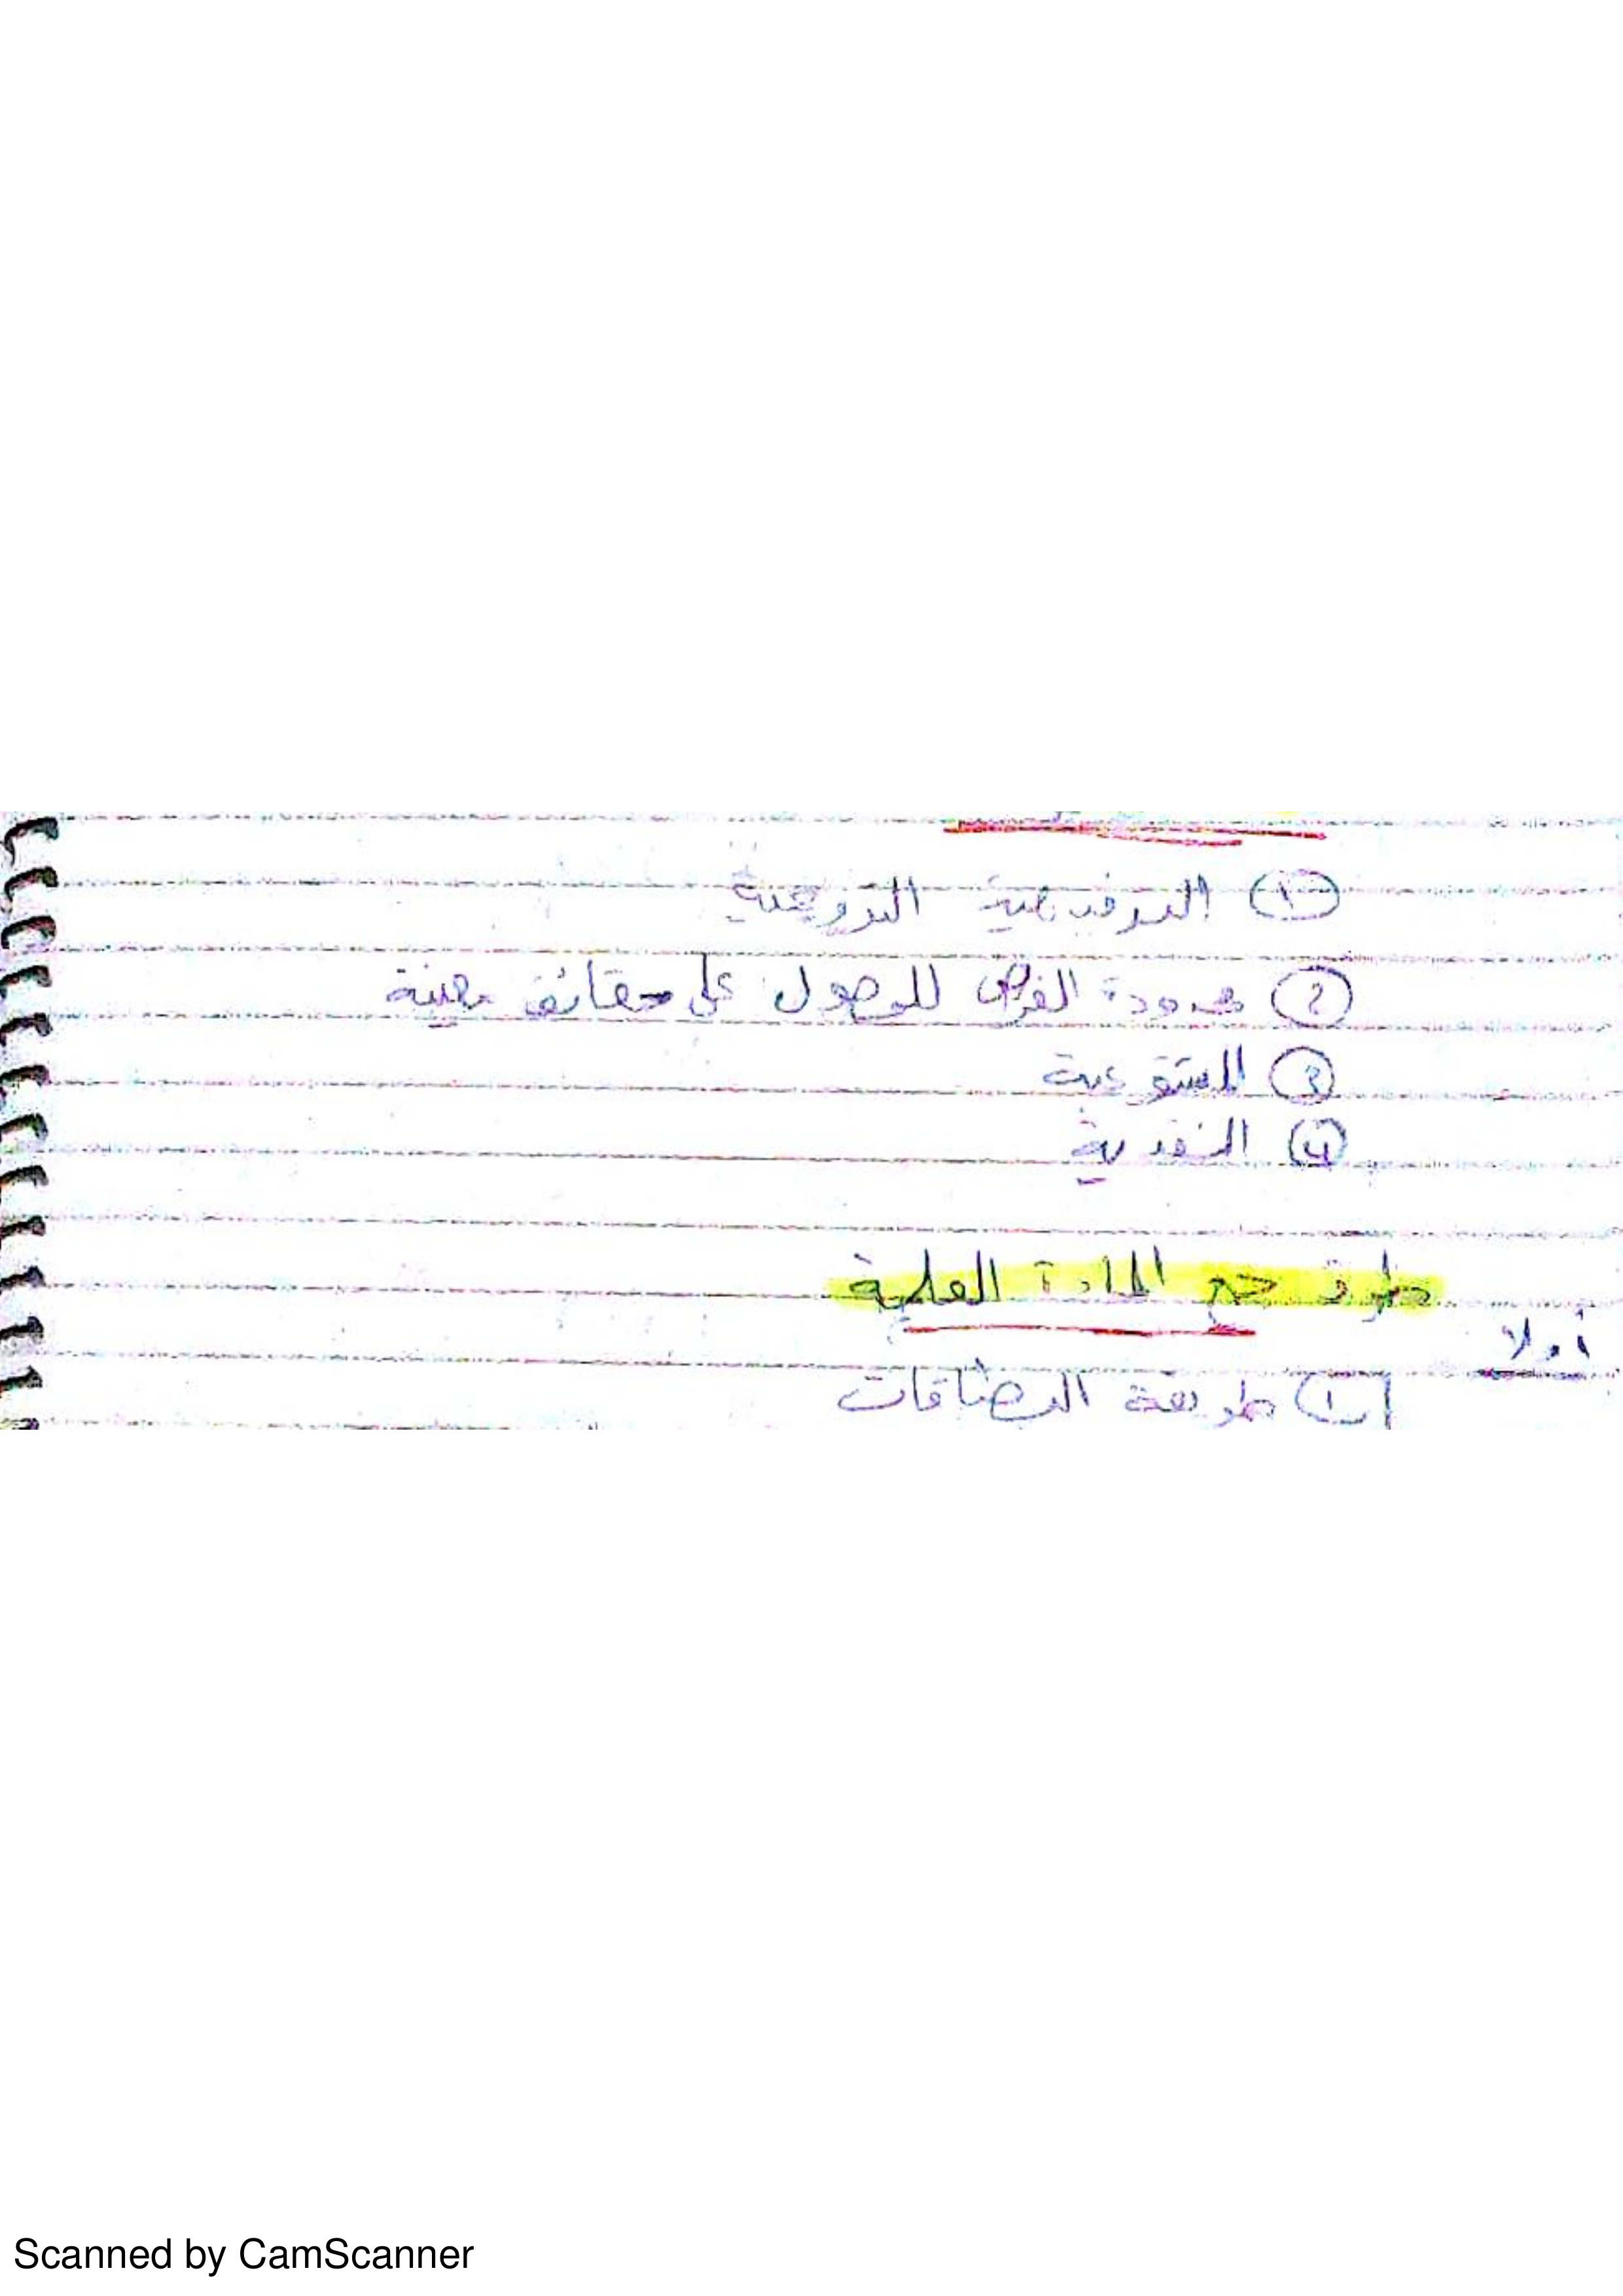 ① الترفيهية الترويحية
② محدودة الغرض للوصول على حقائق معينة
③ المستوعبة
④ النقدية
طرق جمع المادة العلمية
أولا
① طريقة البطاقات
Scanned by CamScanner